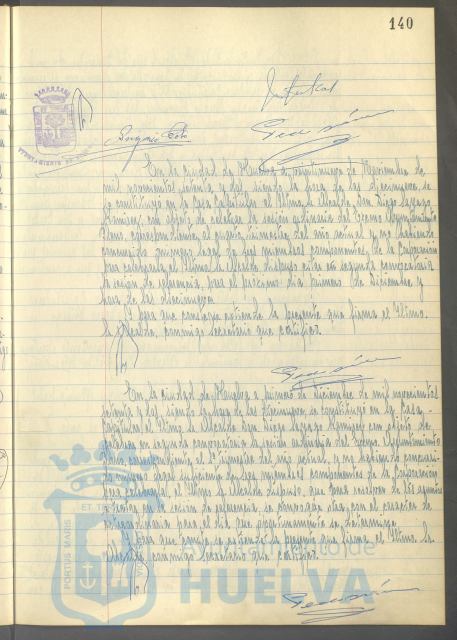 140
En la ciudad de Huelva a veintinueve de Noviembre de
mil novecientos setenta y dos, siendo la hora de las diecinueve se
constituyó en la Casa Capitular el Iltmo. Sr. Alcalde, Don Diego
con objeto de celebrar la sesión ordinaria del Excmo. Ayuntamiento
Pleno, correspondiente al cuarto trimestre del año actual y no habiendo
concurrido número legal de los miembros componentes de la Corporación
para celebrarla, el Iltmo. Sr. Alcalde dispuso citar en segunda convocatoria
la sesión de referencia, para el próximo día primero de Diciembre y
hora de las diecinueve.
Y para que conste se extiende la presente que firma el Iltmo.
Sr. Alcalde, conmigo Secretario que certifico.
En la ciudad de Huelva a primero de Diciembre de mil novecientos
setenta y dos, siendo la hora de las diecinueve se constituyó en la Casa
Capitular el Iltmo. Sr. Alcalde Don Diego con objeto de
celebrar en segunda convocatoria la sesión ordinaria del Excmo. Ayuntamiento
Pleno, correspondiente al 4º trimestre del año actual, y no habiendo concurrido
número legal suficiente de los miembros componentes de la Corporación
para celebrarla, el Iltmo. Sr. Alcalde dispuso, que para
la sesión de referencia, se convocada otra, con el carácter de
extraordinaria para el día que
Y para que conste, se extiende la presente que firma, el Iltmo. Sr.
Alcalde, conmigo Secretario que certifico.
PORTUS MARIS
ET TE
Ayuntamiento de
HUELVA